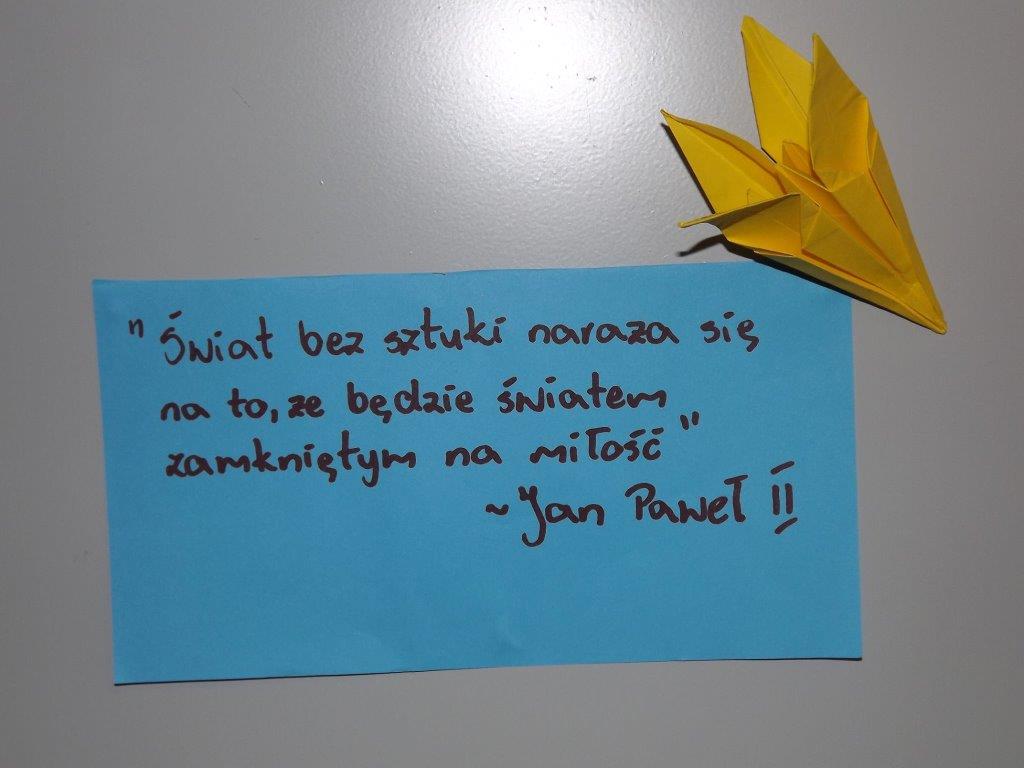 "Świat bez sztuki naraza się
na to, ze będzie światem
zamkniętym na miłość"
~Jan Paweł II